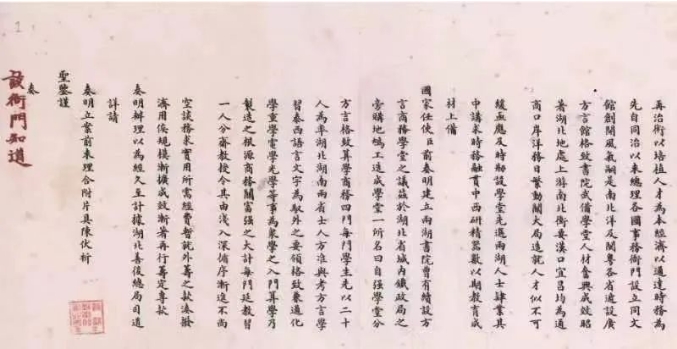 再治術以培植人才為本經濟以通達時務為
先自同治以來總理各國事務衙門設立同文
館創開風氣嗣是南北洋及閩粵各省遞設廣
方言館格致書院武備學堂人材奮興成效昭
著湖北地處上游南北衝要漢口宜昌均為通
商口岸洋務日繁動關大局造就人才似不可
緩亟應及時設學堂先選兩湖人士肄業其
中講求時務融貫中西研精器數以期教育成
材上備
國家任使臣前奏明建立兩湖書院曾有續設方
言商務學堂之議茲於湖北省城內鐵政局之
旁購地鳩工造成學堂一所名曰自強學堂分
方言格致算學商務四門每門學生先以二十
人為率湖北湖南兩省士人方准與考方言學
習泰西語言文字為馭外之要領格致兼通化
學重學電學光學等事為眾學之入門算學乃
製造之根源商務關富強之大計每門延教習
一人分齋教授令其由淺入深循序漸進不尚
空談務求實用所需經費暫就外籌之款湊撥
濟用俟規模漸擴成效漸著再行籌定專款
奏明辦理以為經久至計據湖北善後總局司道
詳請
奏明立案前來理合附片具陳伏祈
聖鑒謹
奏
該衙門知道